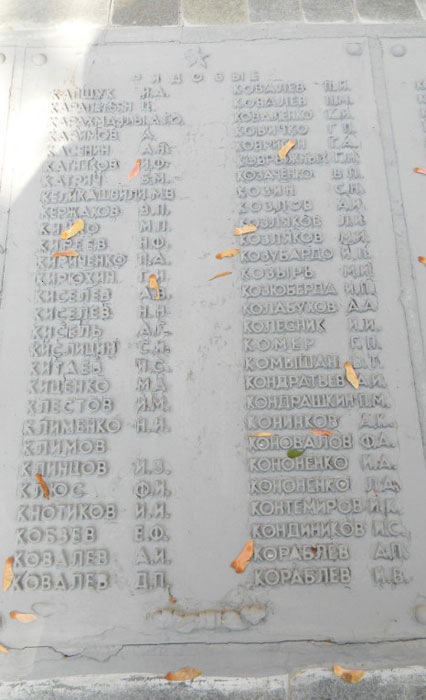 РЯДОВЫЕ
КАПЩУК И.А.
КАРАПЕТЬЯН Ц.
КАРИМОВ А.
КАСЕНИН А.П.
КАТРИЧ Б.М.
КЕЛИКАШВИЛИ М.В.
КЕРЖАКОВ В.П.
М.П.
КИРЕЕВ Н.Ф.
КИРИЧЕНКО П.А.
КИРЮХИН Г.И.
КИСЕЛЕВ А.
КИСЕЛЕВ Н.Н.
КИСЕЛЬ А.Г.
КИСЛИЦИН С.Н.
КИТАЕВ П.С.
КИЦЕНКО М.А.
КЛЕСТОВ И.М.
КЛИМЕНКО Н.Я.
КЛИМОВ
КЛИНЦОВ И.З.
КЛЮС Ф.И.
КНОТИКОВ И.И.
КОБЗЕВ Е.Ф.
КОВАЛЕВ А.И.
КОВАЛЕВ Д.П.
КОВАЛЕВ П.К.
КОВАЛЕВ П.М.
КОВАЛЕНКО Г.И.
КОВИЧКО Г.П.
КОВРИГИН А.
КОВРЫЖНЫЙ Г.М.
КОЗАЧЕНКО В.Л.
КОЗИН С.Н.
КОЗЛОВ А.И.
КОЗЛЯКОВ Л.И.
КОЗЛЯКОВ М.И.
КОЗУБАРДО И.П.
КОЗЫРЬ М.И.
КОЗЮБЕРДА И.П.
КОЛАБУХОВ А.А.
КОЛЕСНИК И.И.
КОМЕР Г.П.
КОМЫШАН В.Т.
КОНДРАТЬЕВ А.И.
КОНДРАШКИН П.М.
КОНИНКОВ А.М.
КОНОВАЛОВ Ф.А.
КОНОНЕНКО И.А.
КОНОНЕНКО Л.Д.
КОНТЕМИРОВ И.К.
КОНДИНИКОВ И.С.
КОРАБЛЕВ А.П.
КОРАБЛЕВ И.В.